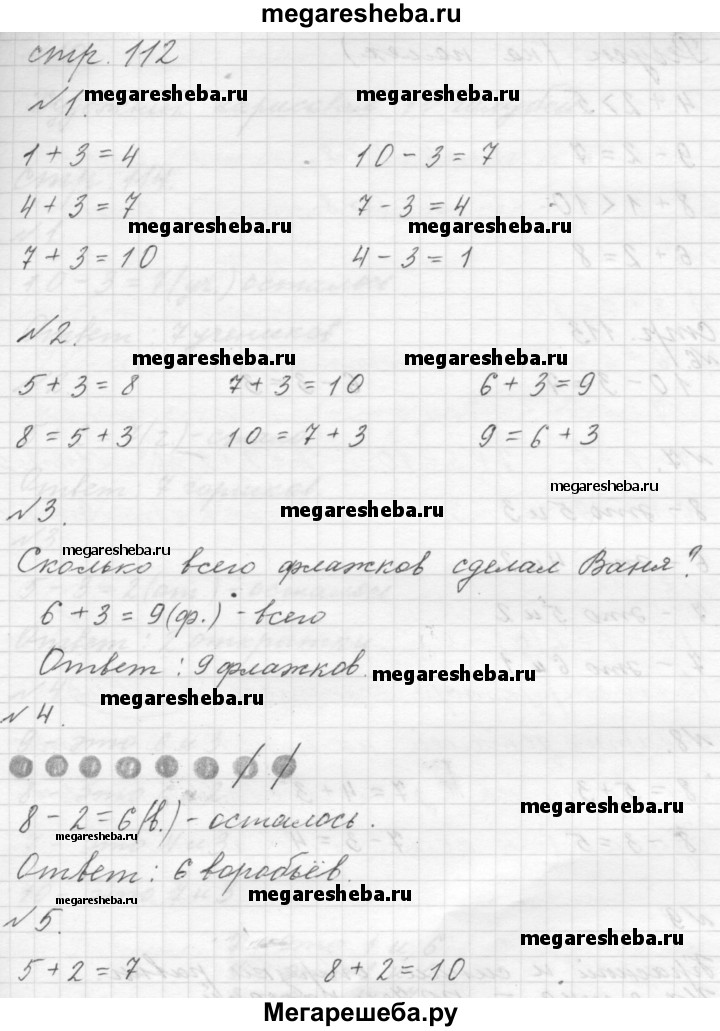 megaresheba.ru
стр. 112
№1.
megaresheba.ru megaresheba.ru
1 + 3 = 4 10 - 3 = 7
4 + 3 = 7 7 - 3 = 4
megaresheba.ru megaresheba.ru
7 + 3 = 10 4 - 3 = 1
№2.
megaresheba.ru megaresheba.ru
5 + 3 = 8 7 + 3 = 10 6 + 3 = 9
8 = 5 + 3 10 = 7 + 3 9 = 6 + 3
megaresheba.ru
№3.
megaresheba.ru
megaresheba.ru
Сколько всего флажков сделал Ваня?
6 + 3 = 9 (ф.) - всего
Ответ: 9 флажков.
megaresheba.ru
megaresheba.ru
№4.
8 - 2 = 6 (в.) - осталось.
megaresheba.ru
megaresheba.ru
Ответ: 6 воробьёв.
megaresheba.ru
№5.
megaresheba.ru
5 + 2 = 7 8 + 2 = 10
Мегарешеба.ру